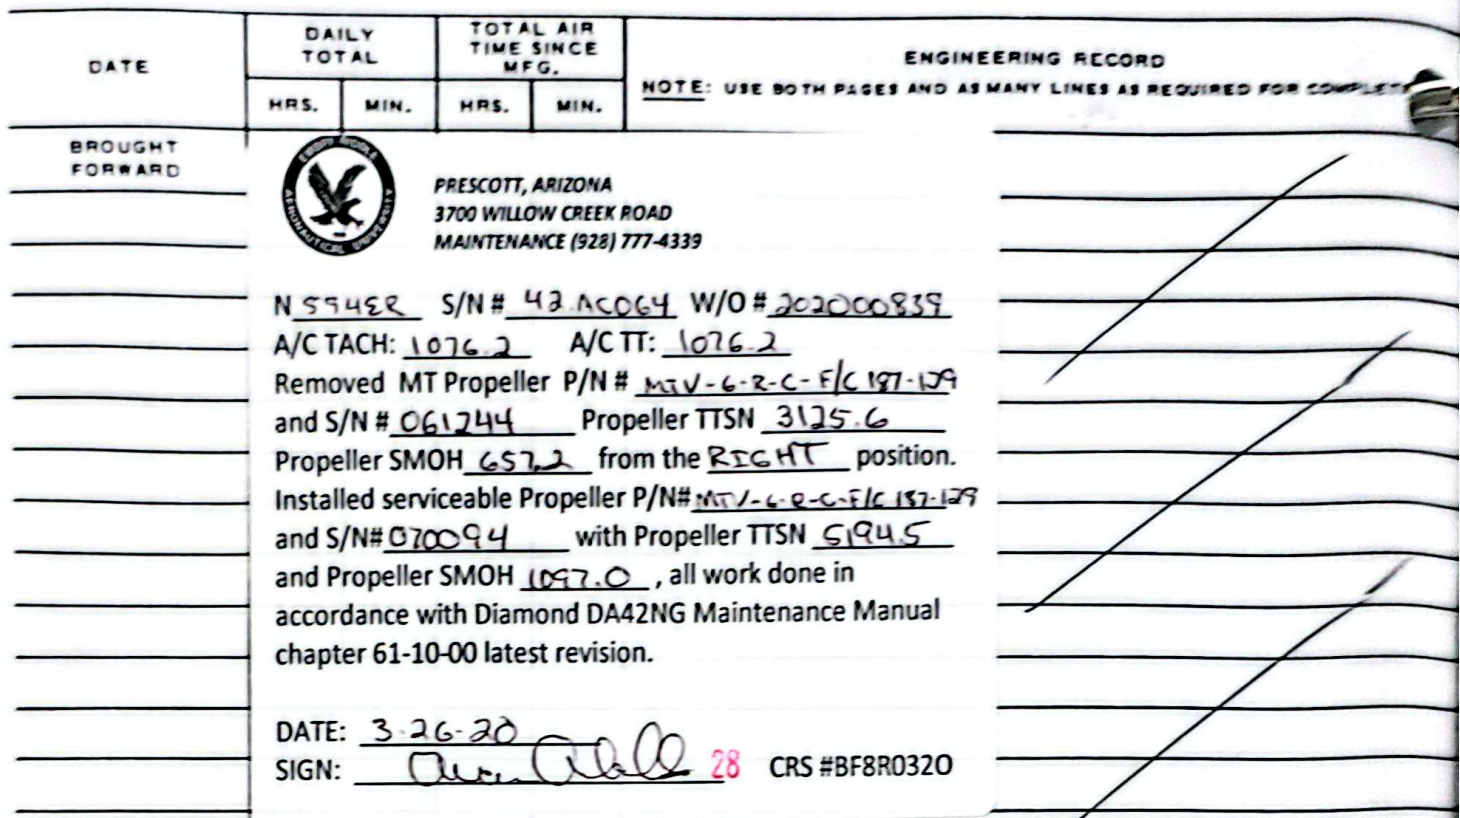 DATE
DAILY TOTAL
TOTAL AIR TIME SINCE MFG.
ENGINEERING RECORD
NOTE: USE BOTH PAGES AND AS MANY LINES AS REQUIRED FOR COMPLETE
HRS. MIN. HRS. MIN.
BROUGHT FORWARD
EMBRY RIDDLE AERONAUTICAL UNIVERSITY
PRESCOTT, ARIZONA
3700 WILLOW CREEK ROAD
MAINTENANCE (928) 777-4339
N 594ER S/N # 42.AC064 W/O # 202000839
A/C TACH: 1076.2 A/C TT: 1076.2
Removed MT Propeller P/N # MTV-6-R-C-F/C 187-129
and S/N # 061244 Propeller TTSN 3125.6
Propeller SMOH 657.2 from the RIGHT position.
Installed serviceable Propeller P/N# MTV-6-R-C-F/C 187-129
and S/N# 070094 with Propeller TTSN 5194.5
and Propeller SMOH 1097.0, all work done in
accordance with Diamond DA42NG Maintenance Manual
chapter 61-10-00 latest revision.
DATE: 3-26-20
SIGN: 28 CRS #BF8R032O